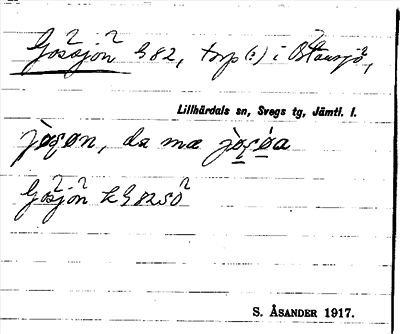 Gosjön G 82, torp(s) i Östansjö,
Lillhärdals sn, Svegs tg, Jämtl. l.
jøsøn, da mæ jøsøa
Gosjön k G 82 SO
S. ÅSANDER 1917.